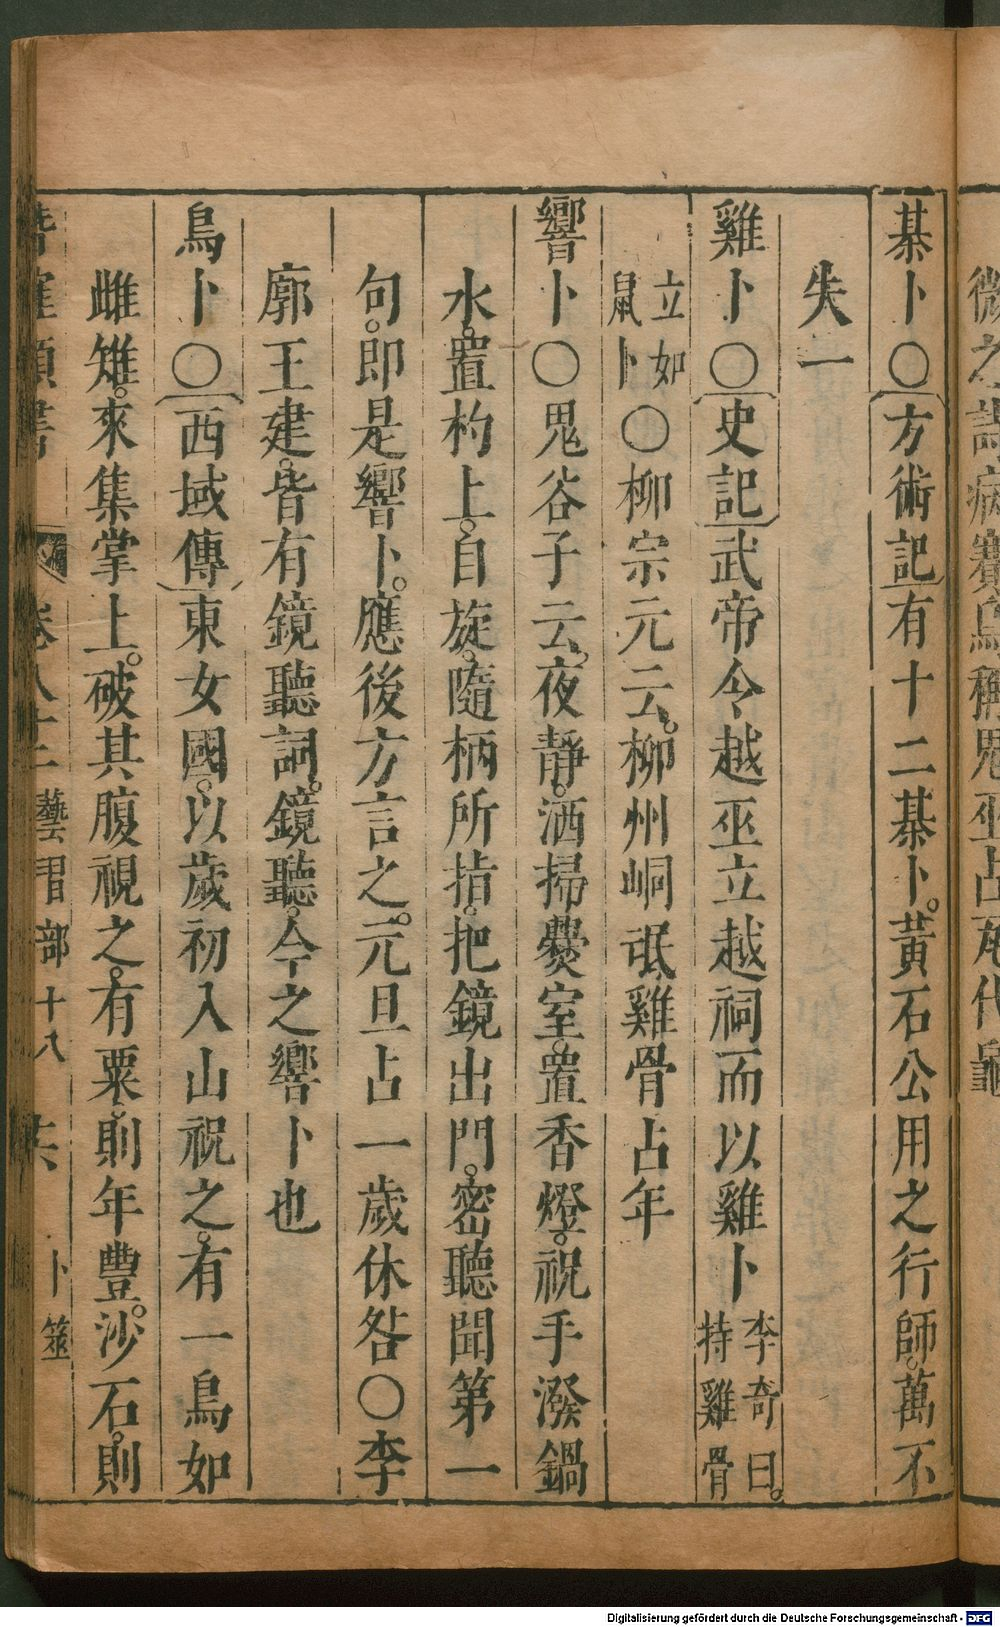 微之詩病賽烏稱鬼巫占瓦代龜
棊卜○方術記有十二棊卜。黃石公用之行師。萬不
失一
雞卜○史記武帝令越巫立越祠而以雞卜李奇曰。持雞骨
立如鼠卜○柳宗元云。柳州峒氓雞骨占年
響卜○鬼谷子云。夜靜。洒掃爨室。置香燈。祝手潑鍋
水。置杓上。自旋。隨柄所指。把鏡出門。密聽聞第一
句。即是響卜。應後方言之。元旦占一歲休咎○李
廓王建。皆有鏡聽詞。鏡聽。今之響卜也
鳥卜○西域傳東女國。以歲初入山祝之。有一鳥如
雌雉。來集掌上。破其腹視之。有粟。則年豐。沙石。則
類書 卷八十二 藝習部十八 卜筮
Digitalisierung gefördert durch die Deutsche Forschungsgemeinschaft - DFG